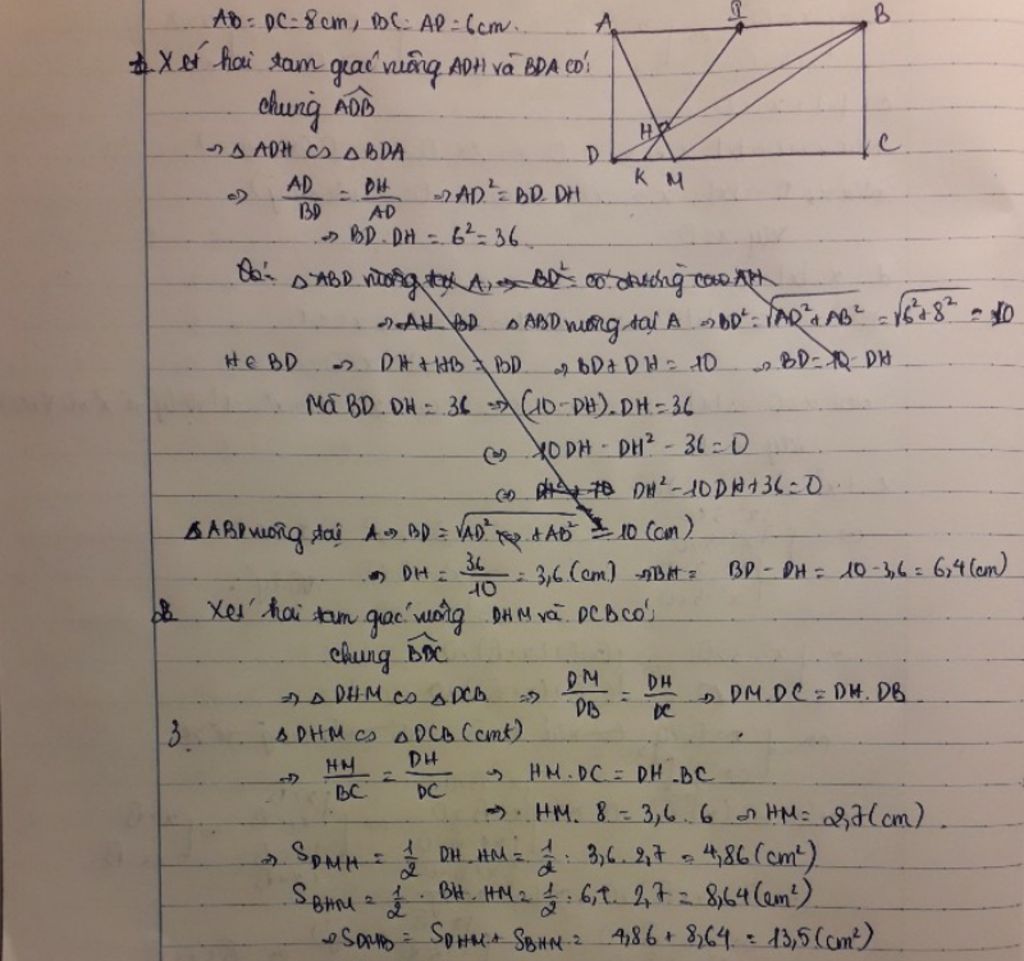 AB = DC = 8cm, BC = AD = 6cm.
A
B
H
D
K
M
C
1. Xét hai tam giác vuông ADH và BDA có:
chung \widehat{ADB}
⇒ Δ ADH ∽ Δ BDA
⇒ AD/BD = DH/AD ⇒ AD² = BD. DH
⇒ BD. DH = 6² = 36.
Δ ABD vuông tại A, ⇒ BD² = có đường cao AH
⇒ AH BD Δ ABD vuông tại A ⇒ BD² = √AD² + AB² = √6² + 8² = 10
H ∈ BD ⇒ DH + HB = BD ⇒ BD + DH = 10 ⇒ BD = 10 - DH
Mà BD. DH = 36 ⇒ (10 - DH). DH = 36
⇔ 10DH - DH² - 36 = 0
⇔ DH² + 10 DH² - 10DH + 36 = 0
Δ ABD vuông tại A ⇒ BD = √AD² + AB² = 10 (cm)
⇒ DH = 36/10 = 3,6 (cm) ⇒ BH = BD - DH = 10 - 3,6 = 6,4 (cm)
2. Xét hai tam giác vuông DHM và DCB có:
chung \widehat{BDC}
⇒ Δ DHM ∽ Δ DCB ⇒ DM/DB = DH/DC ⇒ DM. DC = DH. DB
3. Δ DHM ∽ Δ DCB (cmt)
⇒ HM/BC = DH/DC ⇒ HM. DC = DH. BC
⇒ HM. 8 = 3,6. 6 ⇒ HM = 2,7 (cm).
⇒ S_DMH = 1/2 DH. HM = 1/2. 3,6. 2,7 = 4,86 (cm²)
S_BHM = 1/2. BH. HM = 1/2. 6,4. 2,7 = 8,64 (cm²)
⇒ S_DMB = S_DHM + S_BHM = 4,86 + 8,64 = 13,5 (cm²)